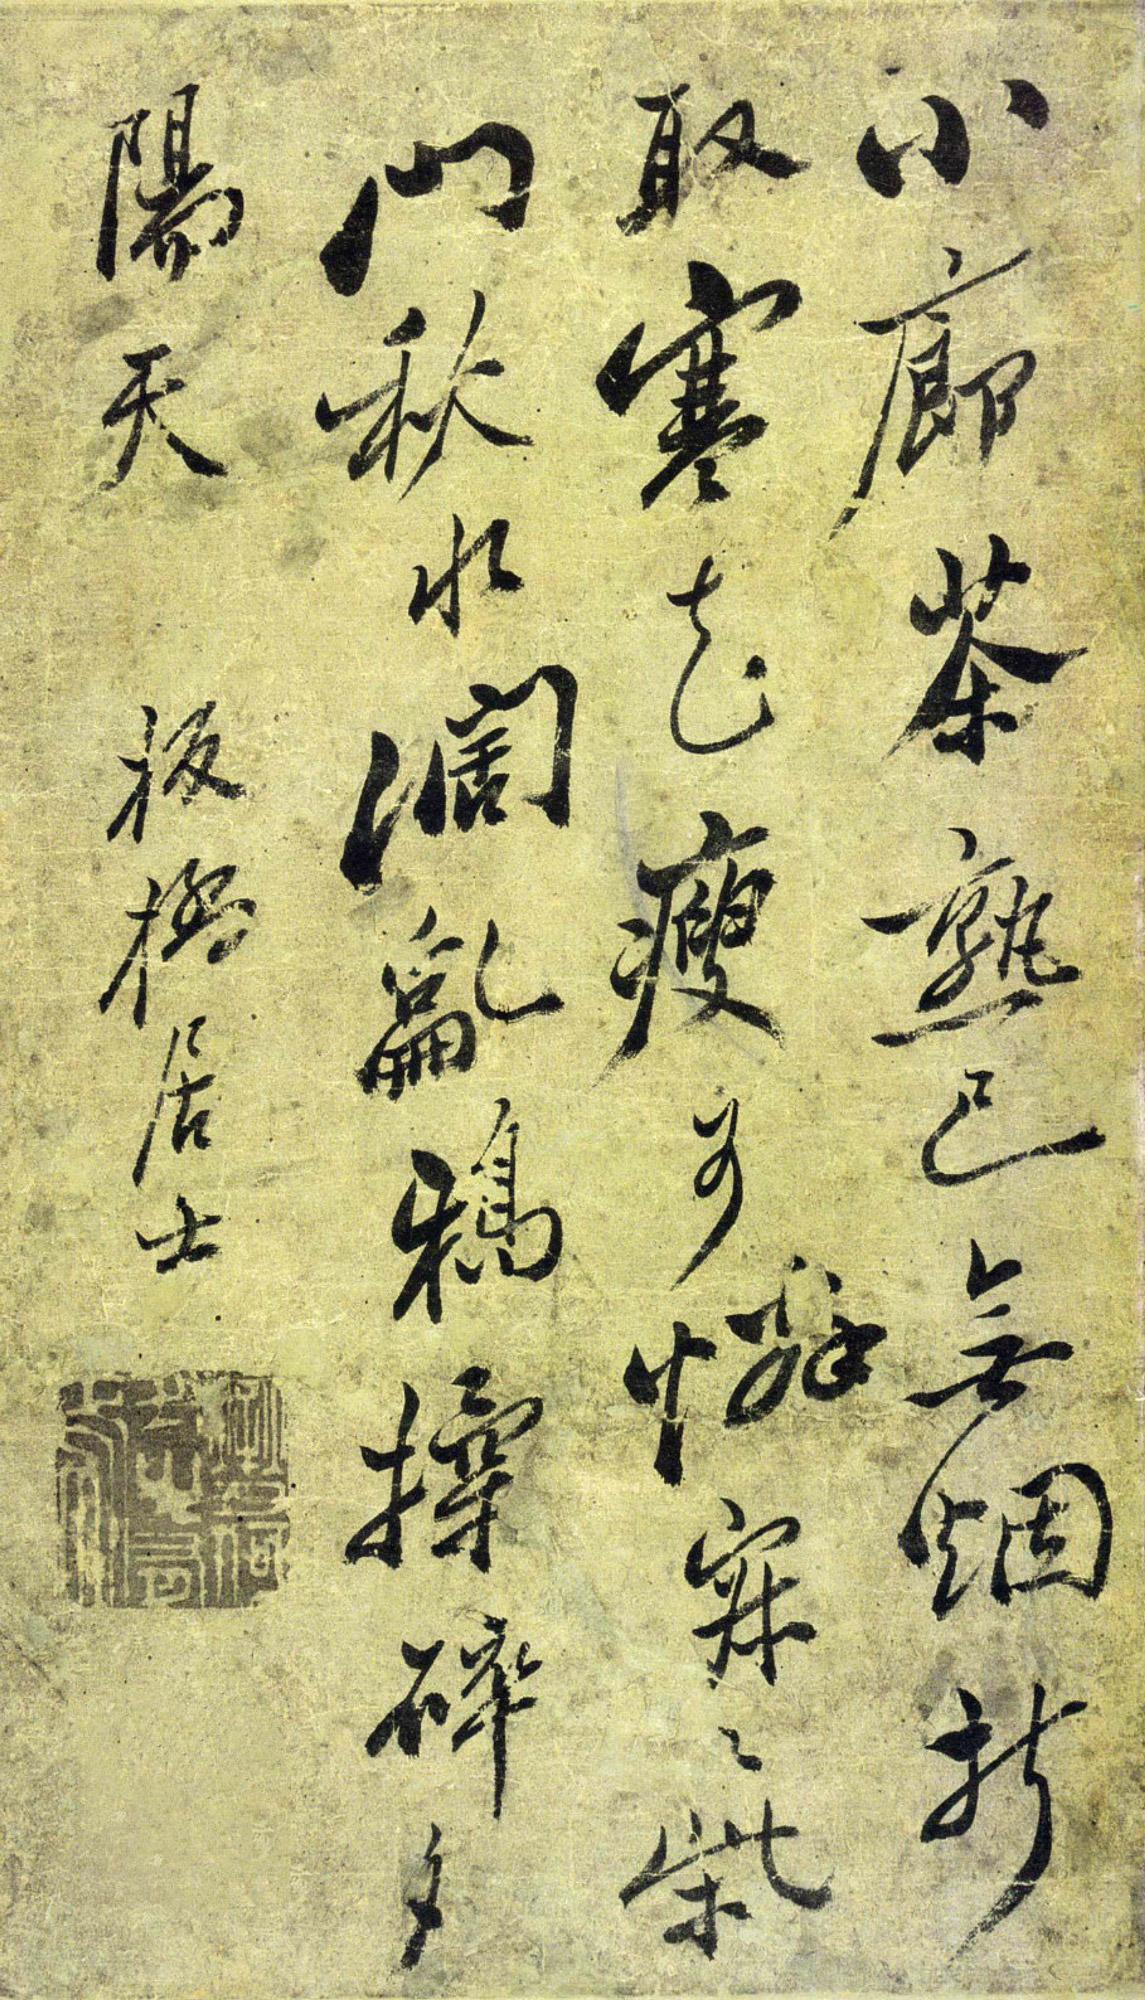 小廊茶熟已無烟折
取寒花瘦可憐寂〻柴
門秋水濶亂鴉揉碎夕
陽天
板橋居士